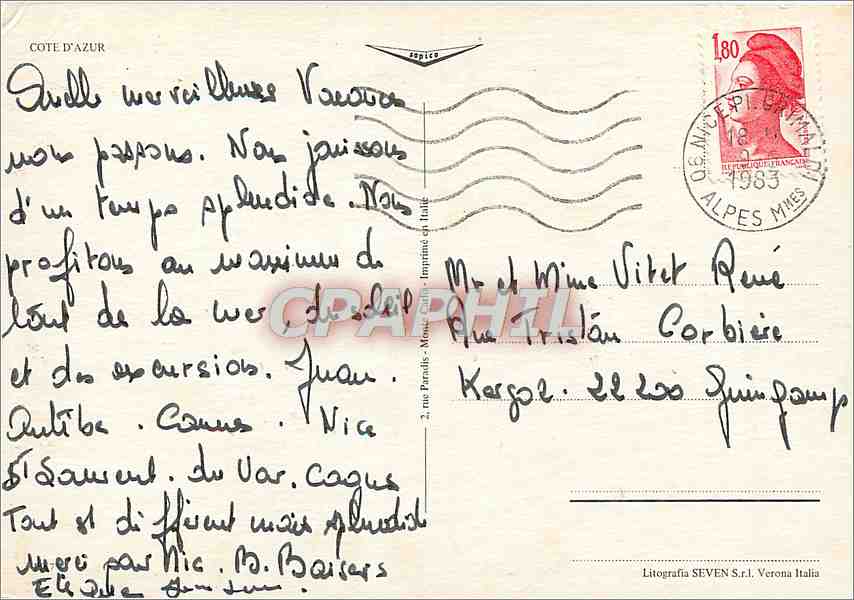 COTE D'AZUR
sapico
1,80
REPUBLIQUE FRANÇAISE
06 NICE PL. GRIMALDI
18 H
1983
ALPES MMES
Quelle merveilleuses Vacances
nous passons. Nous jouissons
d'un temps splendide. Nous
profitons au maximum de
tout de la mer, du soleil
et des excursions. Juan.
Antibe. Cannes. Nice
St Laurent. du Var. Cagnes
Tout est différent mais splendide
merci par Nic. B. Baisers
2, rue Paradis - Monte Carlo - Imprimé en Italie
Mr et Mme Vitet René
Rue Tristan Corbière
Kergoz. 22200 Guingamp
CPAPHIL
Litografia SEVEN S.r.l. Verona Italia